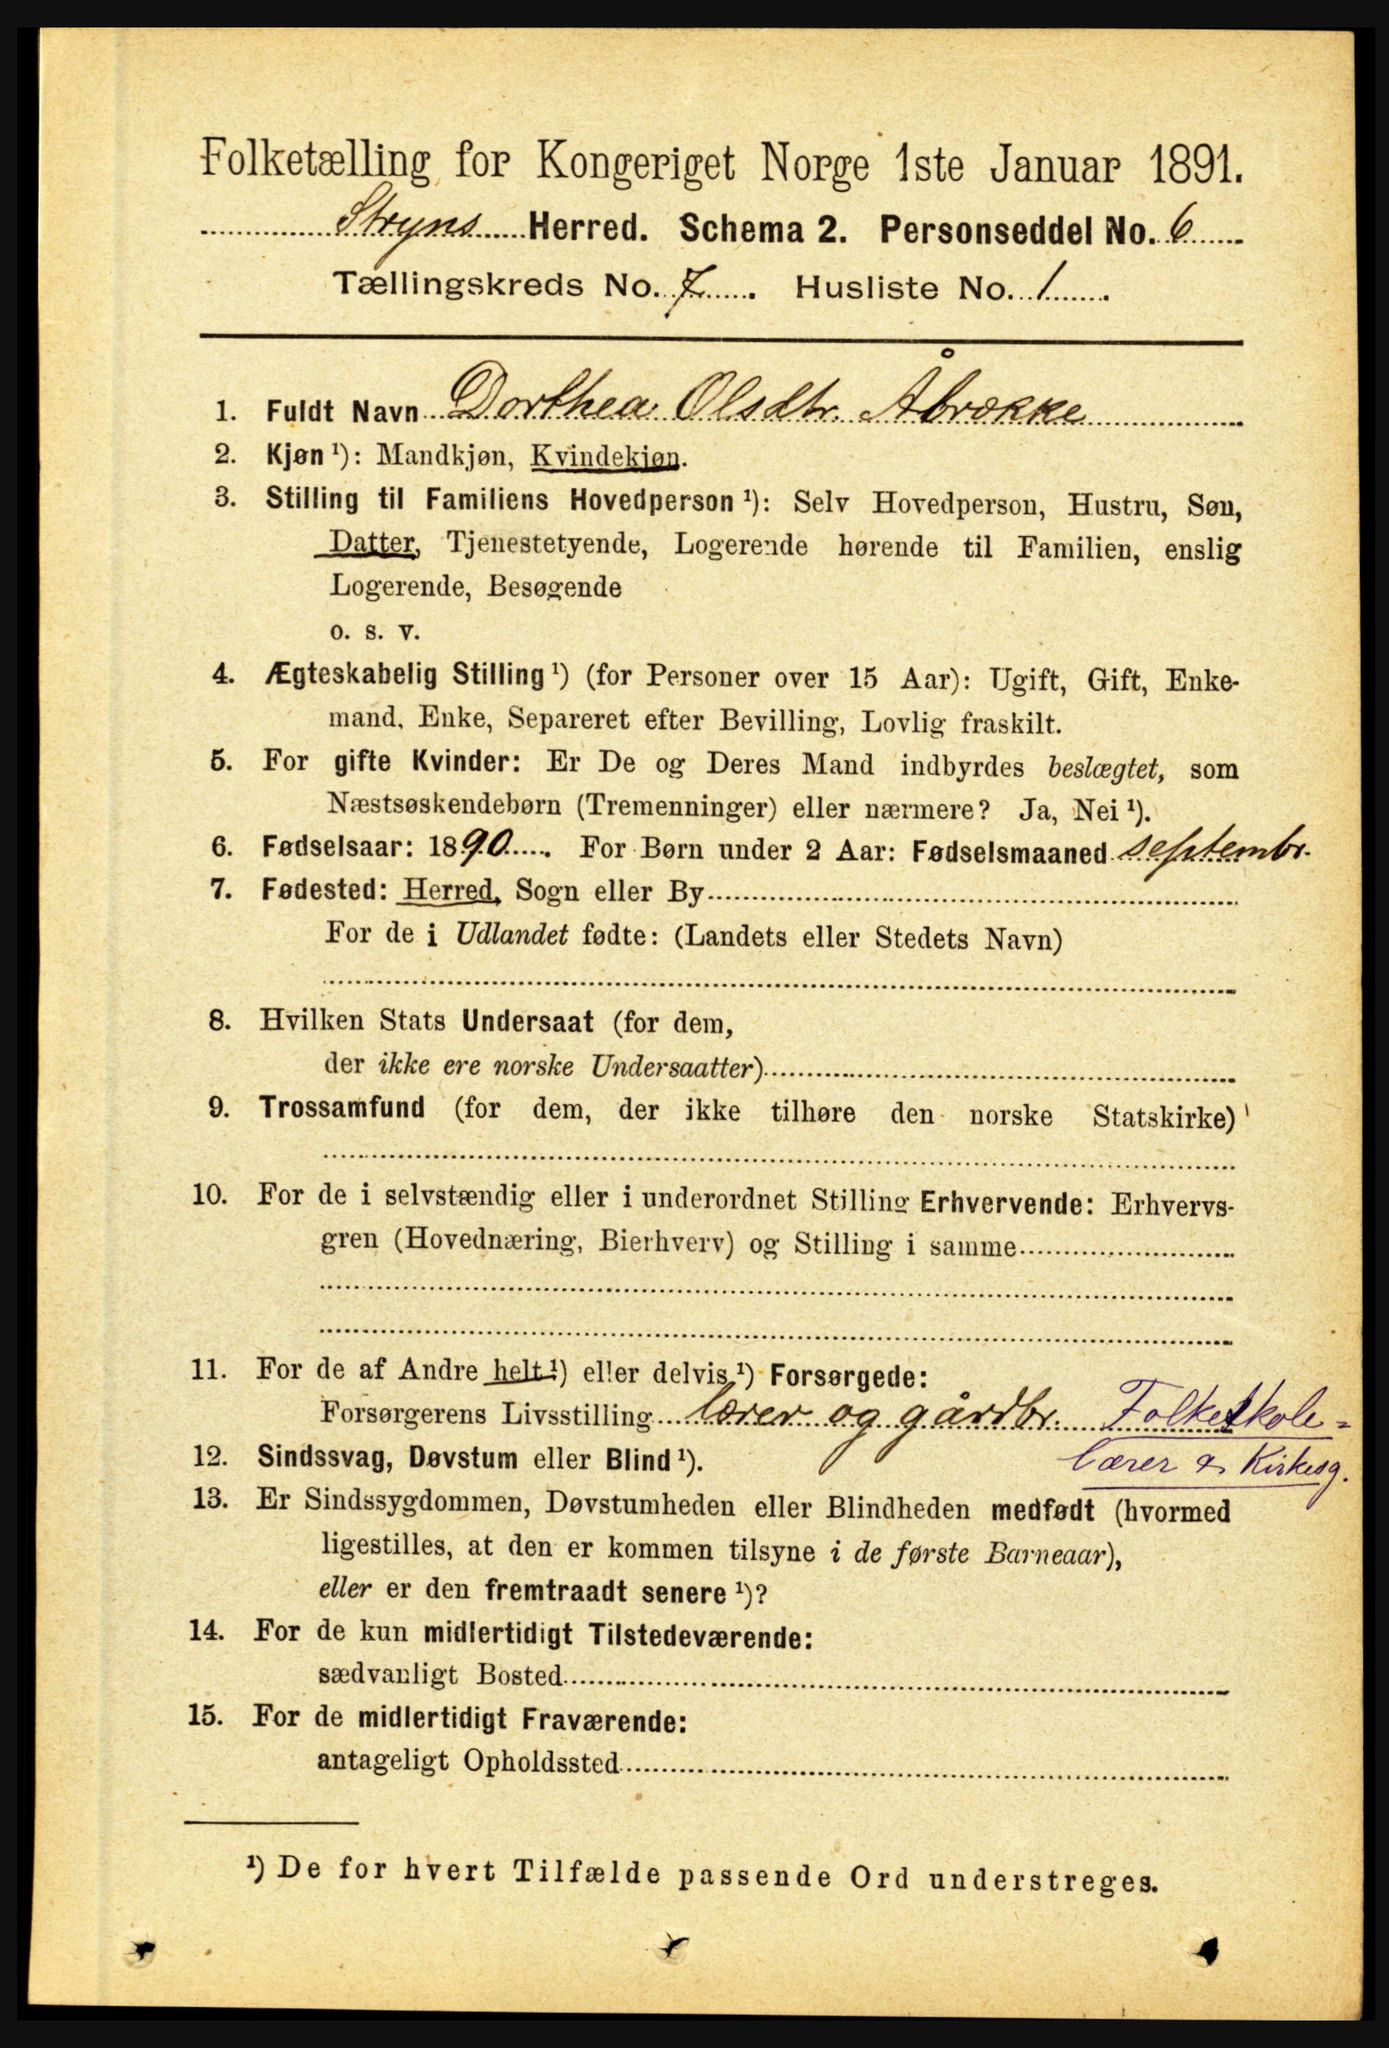 Folketælling for Kongeriget Norge 1ste Januar 1891.
Stryns Herred. Schema 2. Personseddel No. 6
Tællingskreds No. 7. Husliste No. 1.
1. Fuldt Navn Dorthea Olsdtr. Åbrække
2. Kjøn ¹): Mandkjøn, Kvindekjøn.
3. Stilling til Familiens Hovedperson ¹): Selv Hovedperson, Hustru, Søn,
Datter, Tjenestetyende, Logerende hørende til Familien, enslig
Logerende, Besøgende
o. s. v.
4. Ægteskabelig Stilling ¹) (for Personer over 15 Aar): Ugift, Gift, Enke-
mand, Enke, Separeret efter Bevilling, Lovlig fraskilt.
5. For gifte Kvinder: Er De og Deres Mand indbyrdes beslægtet, som
Næstsøskendebørn (Tremenninger) eller nærmere? Ja, Nei ¹).
6. Fødselsaar: 1890. For Børn under 2 Aar: Fødselsmaaned septembr.
7. Fødested: Herred, Sogn eller By
For de i Udlandet fødte: (Landets eller Stedets Navn)
8. Hvilken Stats Undersaat (for dem,
der ikke ere norske Undersaatter)
9. Trossamfund (for dem, der ikke tilhøre den norske Statskirke)
10. For de i selvstændig eller i underordnet Stilling Erhvervende: Erhvervs-
gren (Hovednæring, Bierhverv) og Stilling i samme
11. For de af Andre helt ¹) eller delvis ¹) Forsørgede:
Forsørgerens Livsstilling lærer og gårdbr. Folkeskole=
lærer & Kirkesg.
12. Sindssvag, Døvstum eller Blind ¹).
13. Er Sindssygdommen, Døvstumheden eller Blindheden medfødt (hvormed
ligestilles, at den er kommen tilsyne i de første Barneaar),
eller er den fremtraadt senere ¹)?
14. For de kun midlertidigt Tilstedeværende:
sædvanligt Bosted
15. For de midlertidigt Fraværende:
antageligt Opholdssted
¹) De for hvert Tilfælde passende Ord understreges.